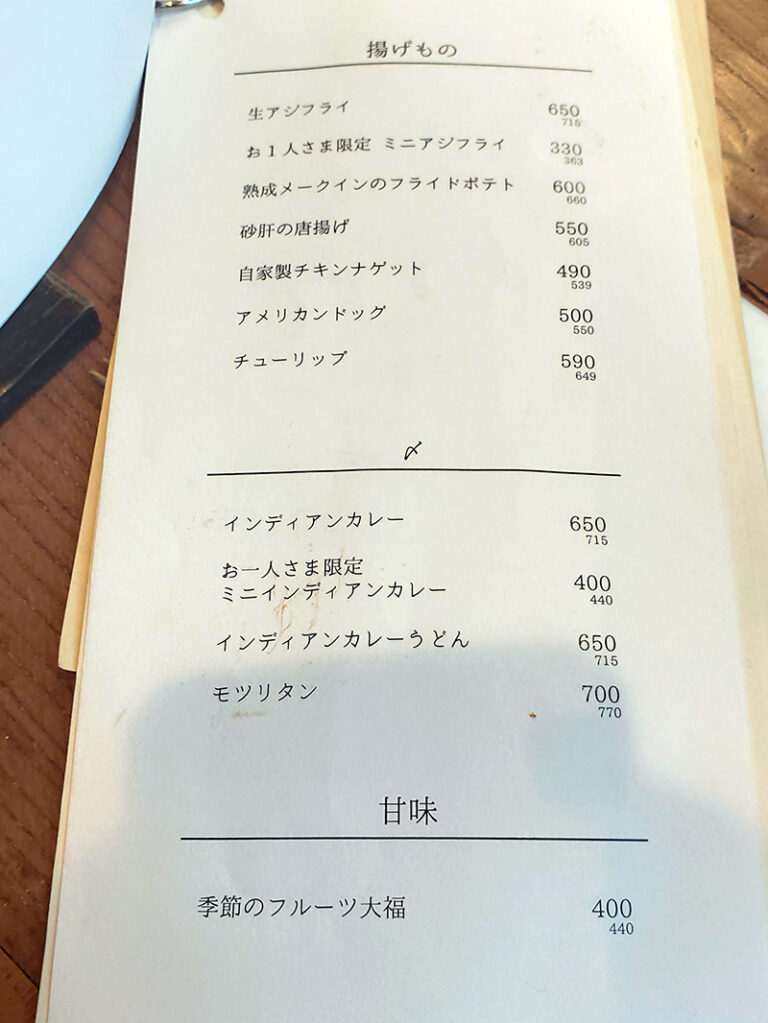 揚げもの
生アジフライ 650
715
お１人さま限定 ミニアジフライ 330
363
熟成メークインのフライドポテト 600
660
砂肝の唐揚げ 550
605
自家製チキンナゲット 490
539
アメリカンドッグ 500
550
チューリップ 590
649
〆
インディアンカレー 650
715
お一人さま限定
ミニインディアンカレー 400
440
インディアンカレーうどん 650
715
モツリタン 700
770
甘味
季節のフルーツ大福 400
440